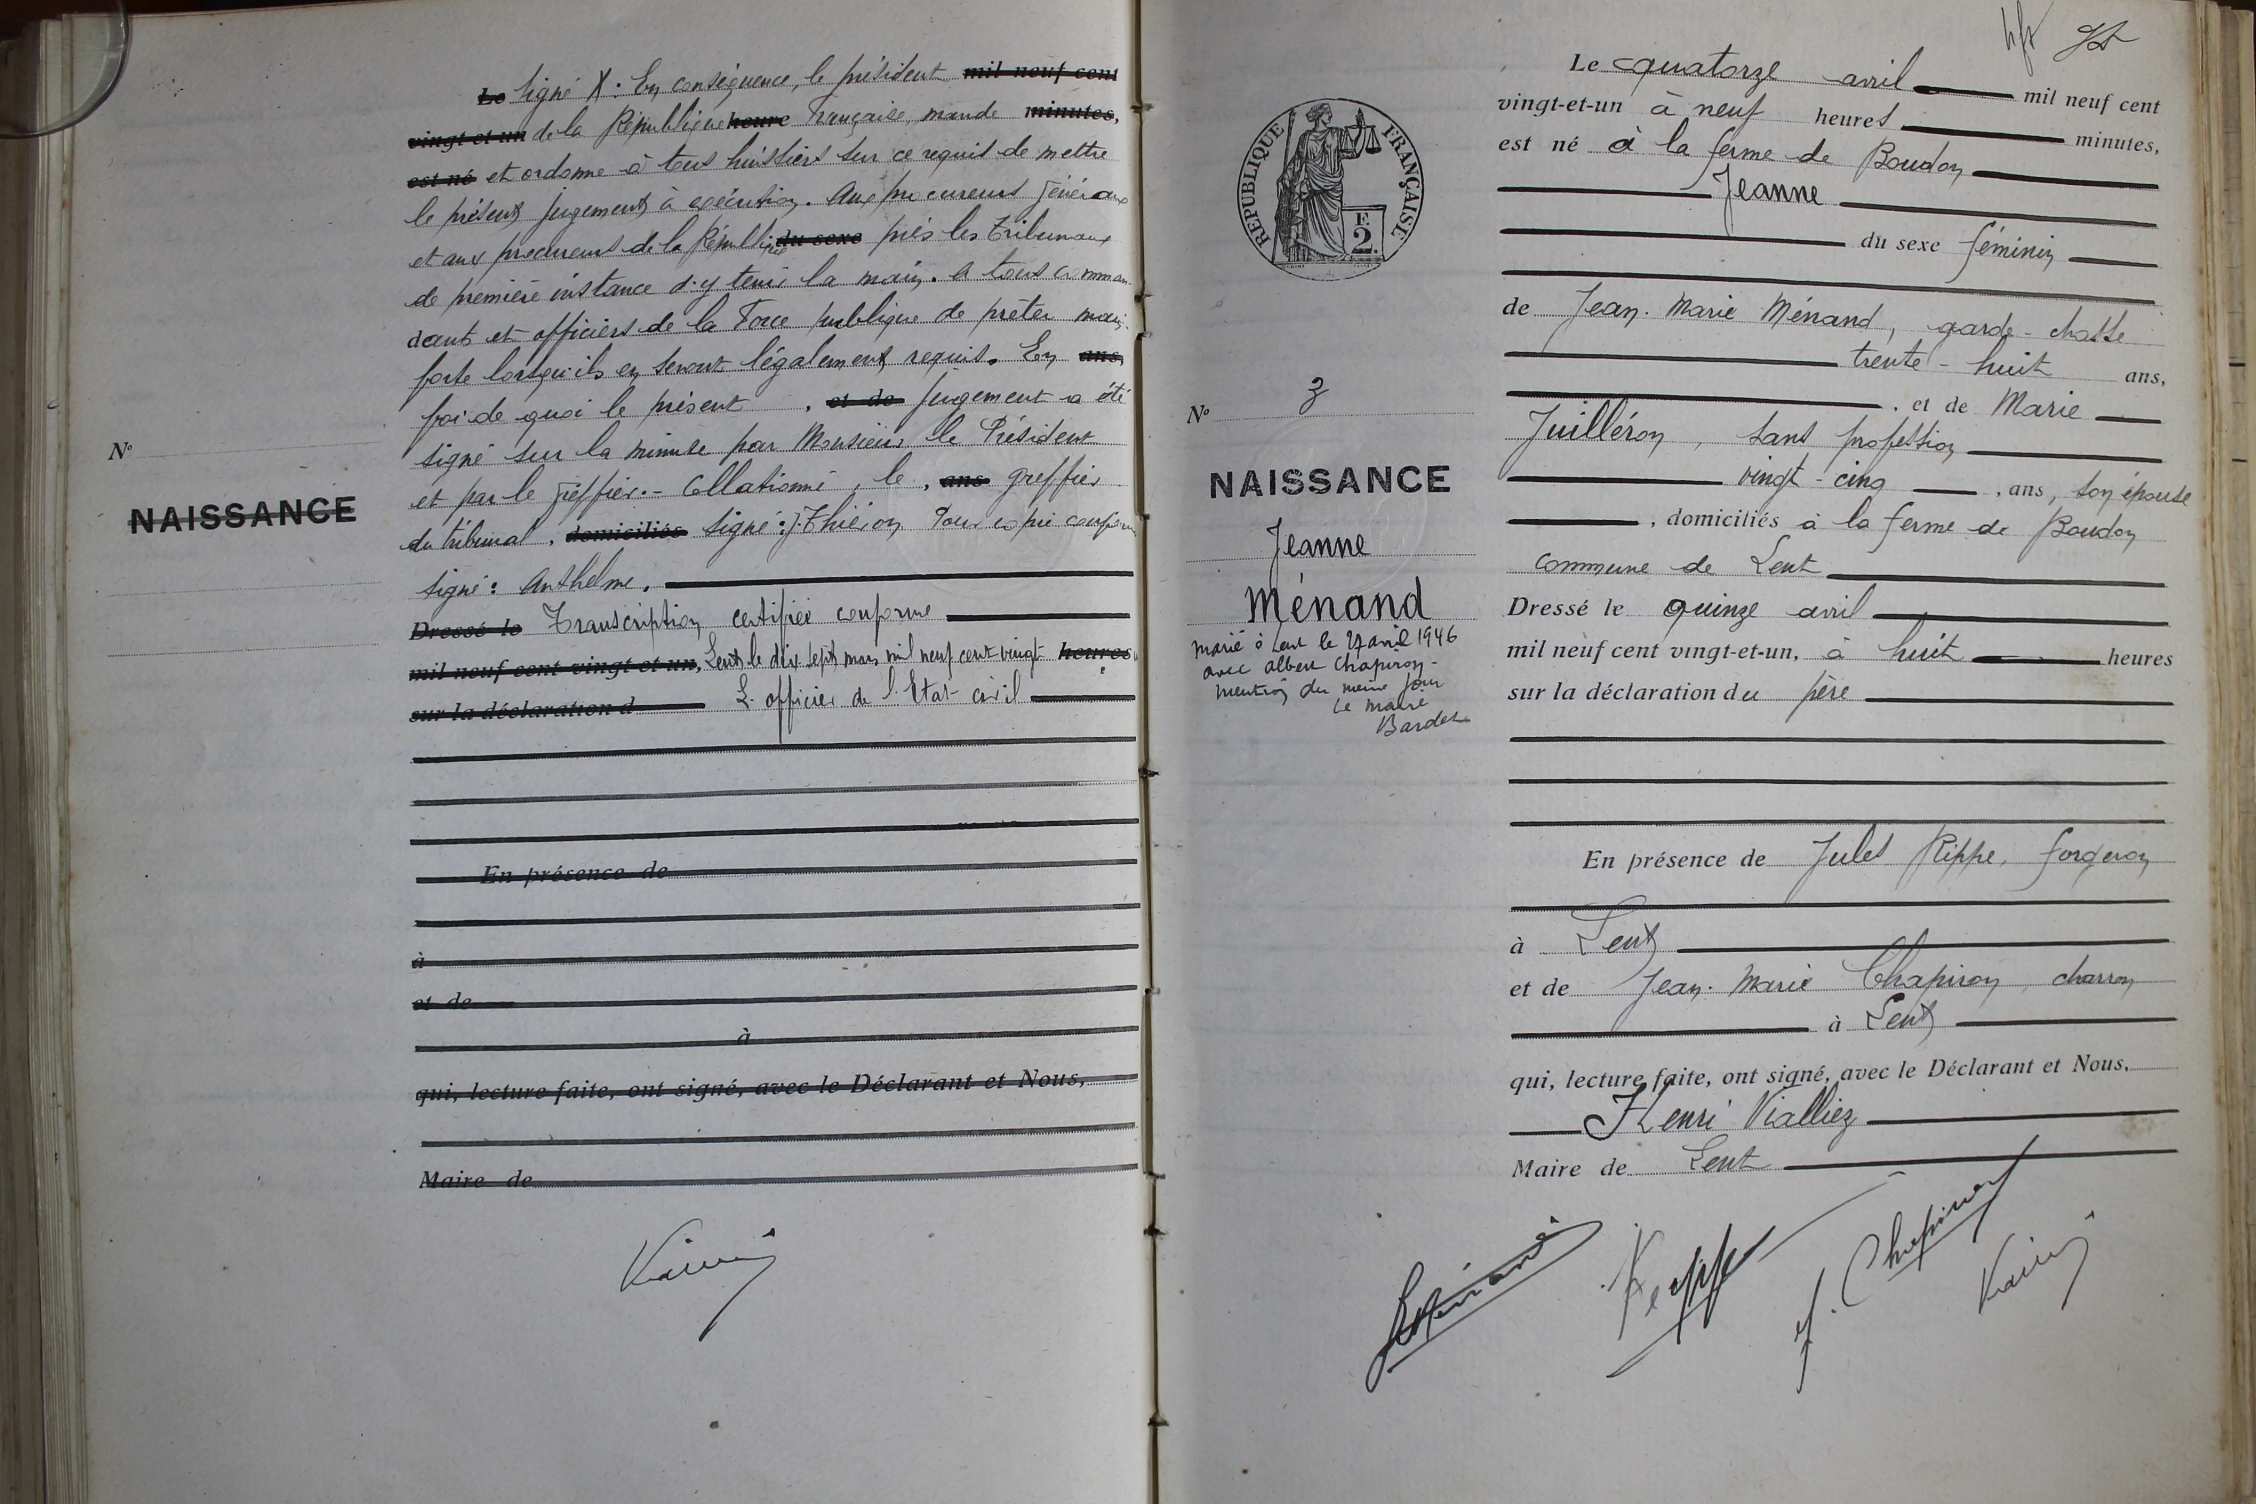 Le signé X. En conséquence, le président mil neuf cent
vingt et un de la République heure Française, mande minutes,
est né et ordonne à tous huissiers sur ce requis de mettre
le présent jugement à exécution. Aux procureurs généraux
et aux procureurs de la République du sexe près les Tribunaux
de première instance d'y tenir la main. A tous comman-
dants et officiers de la Force publique de prêter main
forte lorsqu'ils en seront légalement requis. En ans,
foi de quoi le présent , et de jugement a été
signé sur la minute par Monsieur le Président
et par le greffier. - Collationné, le , ans greffier
du tribunal , domiciliés signé: J. Thiéron Pour copie conforme
signé: Anthelme.
Dressé le Transcription certifiée conforme
mil neuf cent vingt et un, Lent, le dix sept mars mil neuf cent vingt heures
sur la déclaration d L'officier de l'Etat civil
En présence de
à
et de
à
qui, lecture faite, ont signé, avec le Déclarant et Nous,
Maire de
No
NAISSANCE
Le quatorze avril mil neuf cent
vingt-et-un à neuf heures minutes,
est né à la ferme de Boudon
Jeanne
du sexe féminin
de Jean-Marie Ménand, garde-chasse
trente-huit ans,
, et de Marie
Juilléron, sans profession
vingt-cinq , ans, son épouse
, domiciliés à la ferme de Boudon
commune de Lent
Dressé le quinze avril
mil neuf cent vingt-et-un, à huit heures
sur la déclaration du père
En présence de Jules Rippe, forgeron
à Lent
et de Jean-Marie Chapiron, charron
à Lent
qui, lecture faite, ont signé, avec le Déclarant et Nous,
Henri Vialliez
Maire de Lent
RÉPUBLIQUE FRANÇAISE
F
2.
No 3
NAISSANCE
Jeanne
Ménand
marié à Lent le 27 avril 1946
avec Albert Chapiron -
mention du même jour
Le maire
Bardet
J. Chapiron